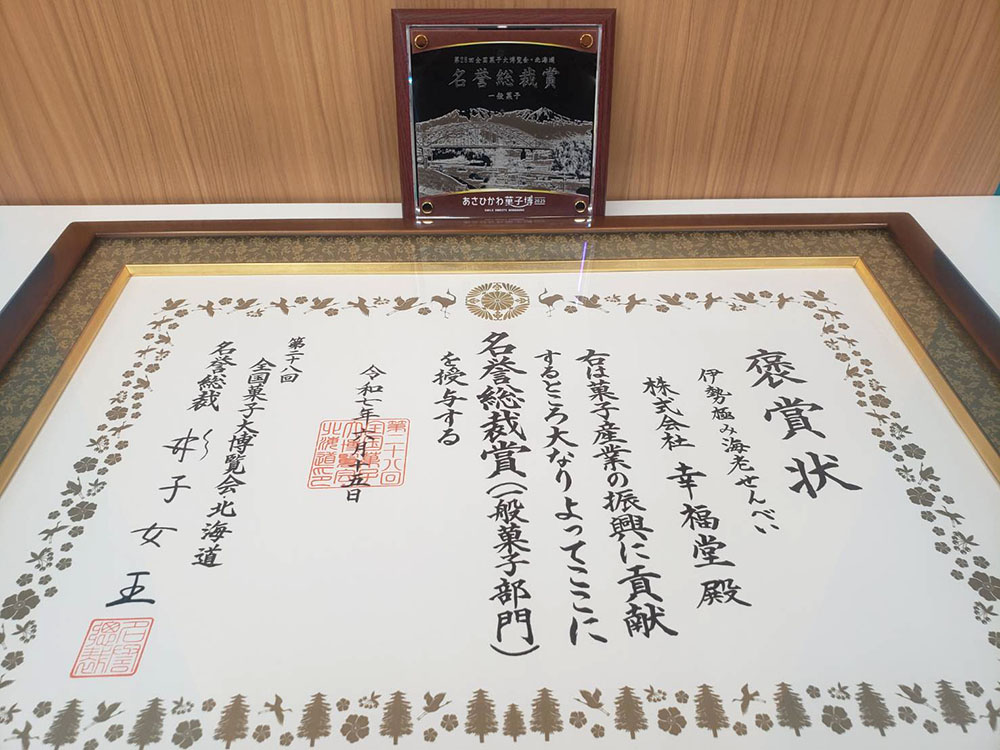 第28回全国菓子大博覧会・北海道
名誉総裁賞
一般菓子
あさひかわ菓子博2025
褒賞状
伊勢極み海老せんべい
株式会社 幸福堂殿
右は菓子産業の振興に貢献
するところ大なりよってここに
名誉総裁賞(一般菓子部門)
を授与する
令和七年六月十五日
第二十八回
全国菓子大博覧会北海道
名誉総裁 彬子女王